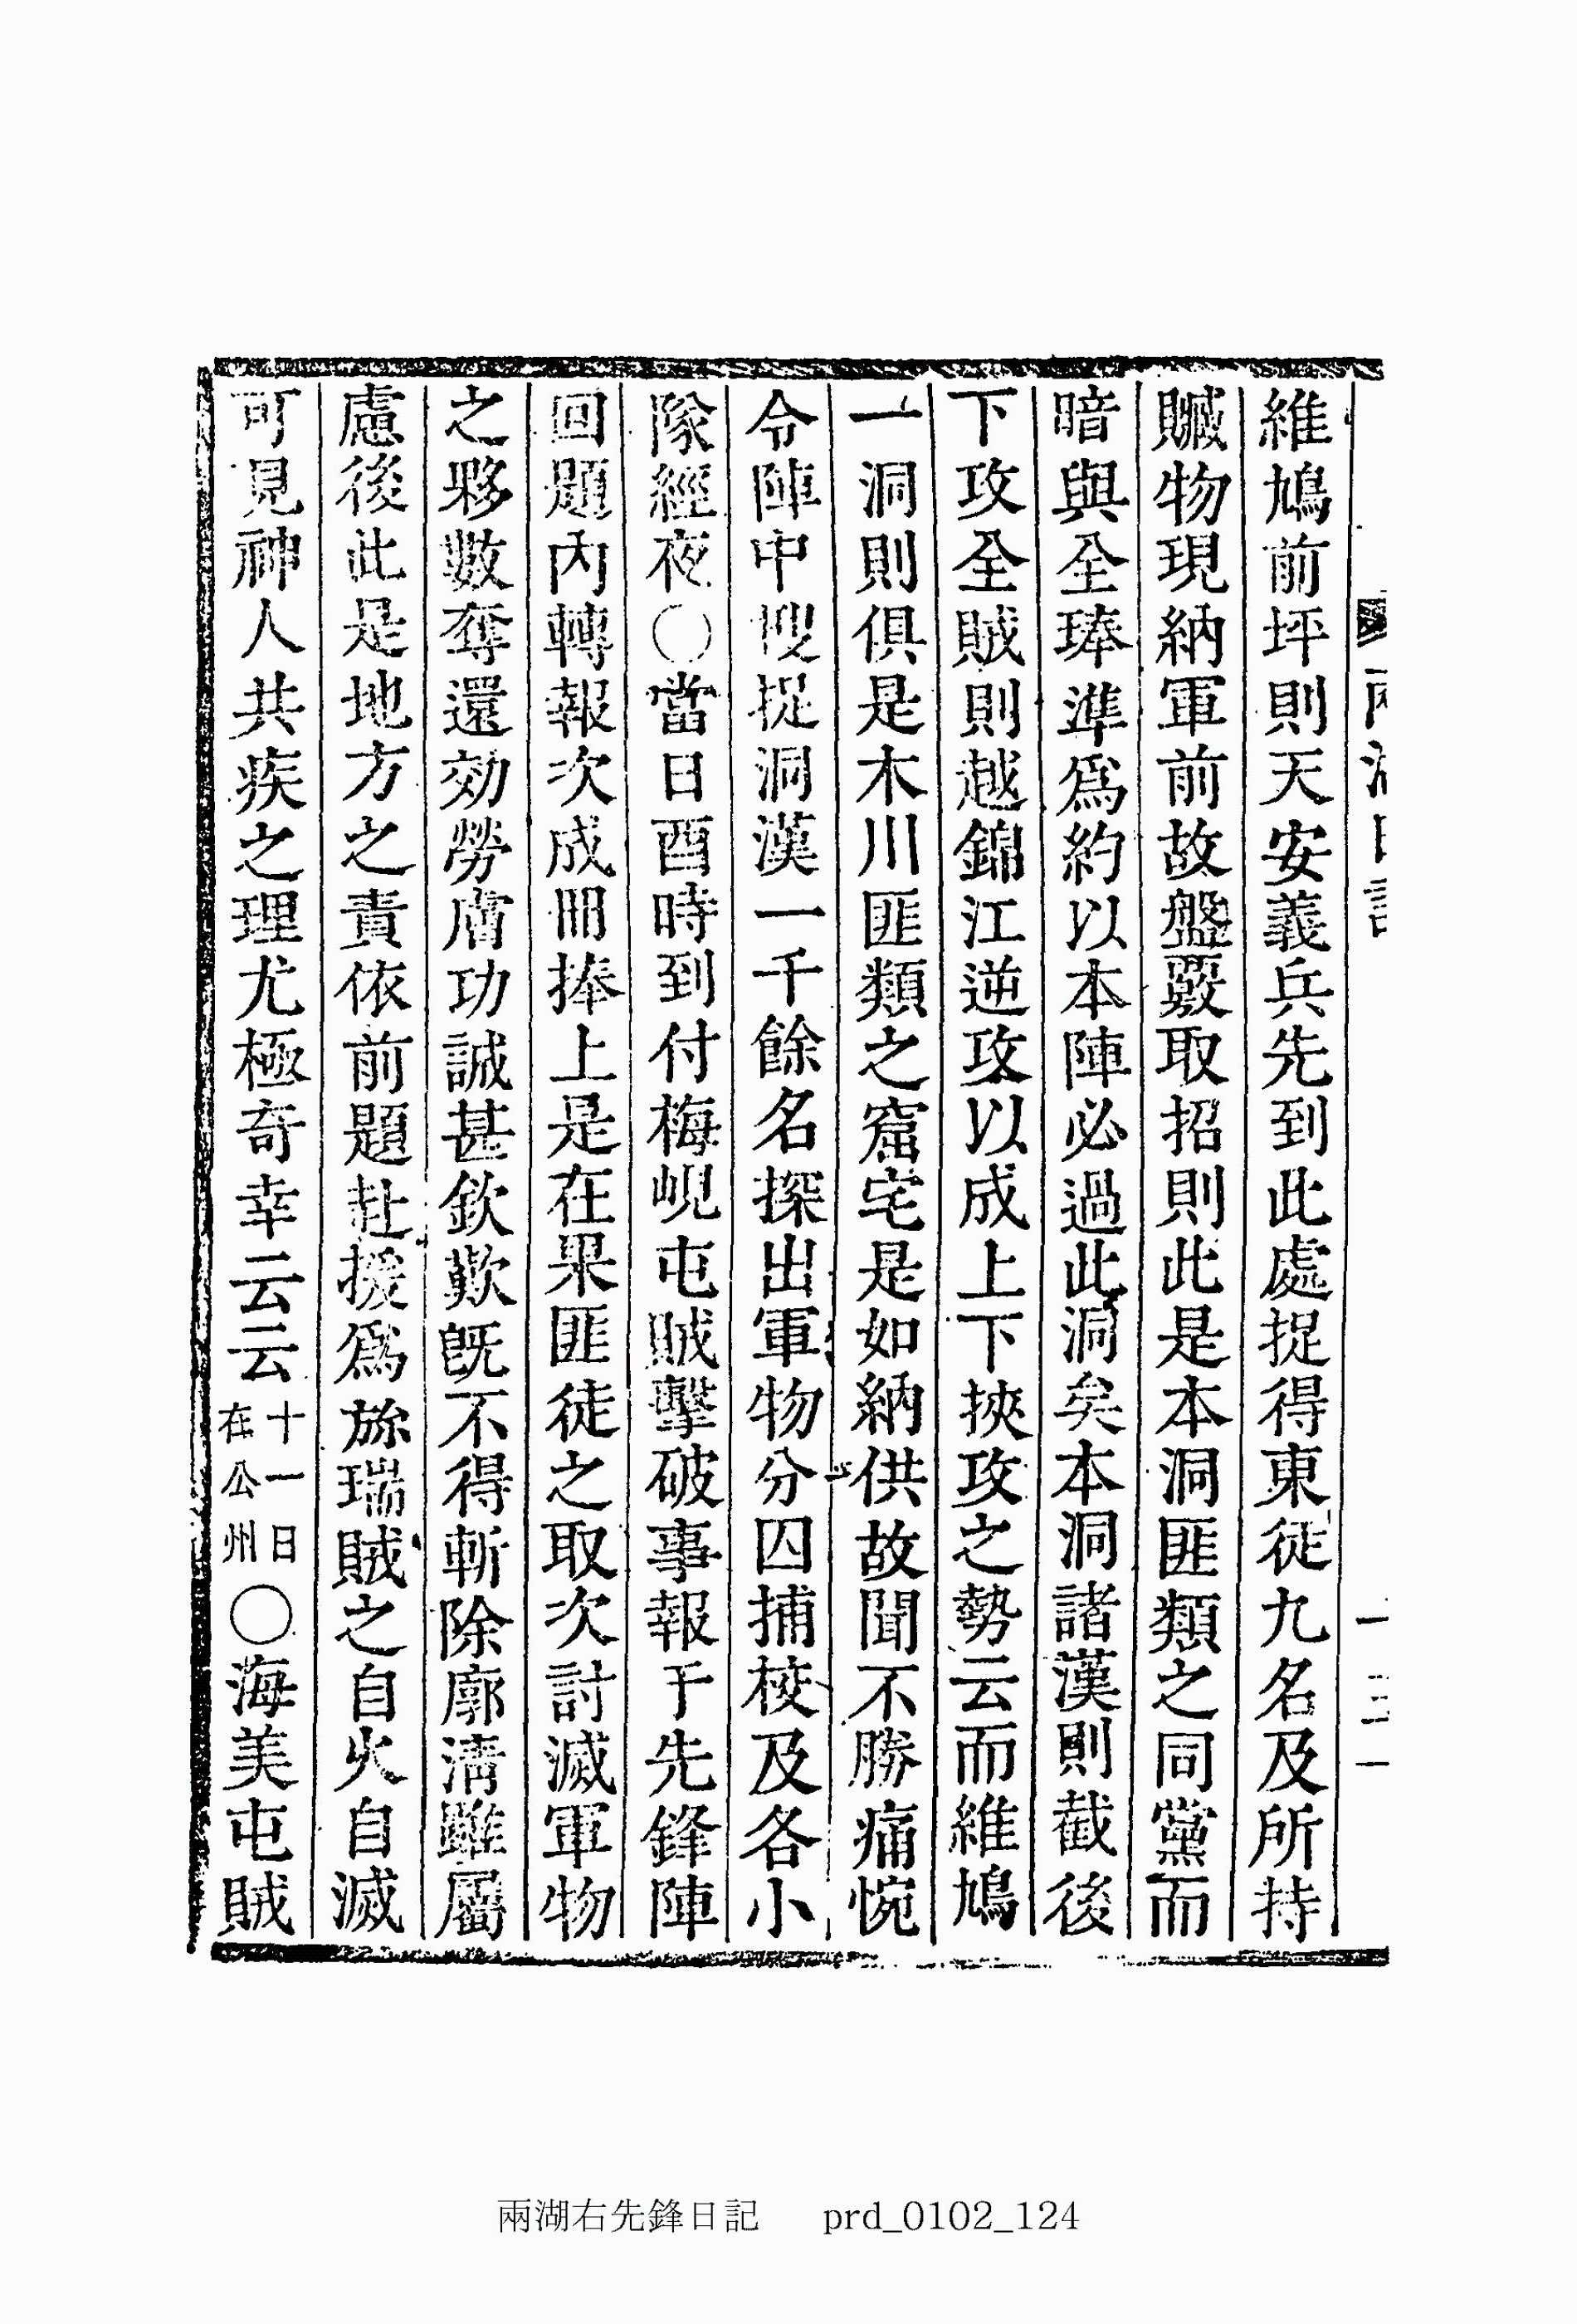 維鳩前坪則天安義兵先到此處捉得東徒九名及所持
贓物現納軍前故盤覈取招則此是本洞匪類之同黨而
暗與全琫準爲約以本陣必過此洞矣本洞諸漢則截後
下攻全賊則越錦江逆攻以成上下挾攻之勢云而維鳩
一洞則俱是木川匪類之窟宅是如納供故聞不勝痛惋
令陣中搜捉洞漢一千餘名探出軍物分囚捕校及各小
隊經夜○當日酉時到付梅峴屯賊擊破事報于先鋒陣
回題內轉報次成冊捧上是在果匪徒之取次討滅軍物
之夥數奪還効勞膚功誠甚欽歎旣不得斬除廓淸雖屬
慮後此是地方之責依前題赴援爲旀瑞賊之自火自滅
可見神人共疾之理尤極奇幸云云十一日在公州○海美屯賊
兩湖右先鋒日記 prd_0102_124